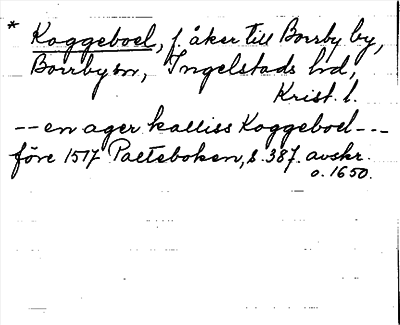 * Koggeboel, f. åker till Borrby by,
Borrby sn, Ingelstads hd,
Krist. l.
-- en ager kalliss Koggeboel ---
före 1517 Palteboken, s. 387. avskr.
o. 1650.